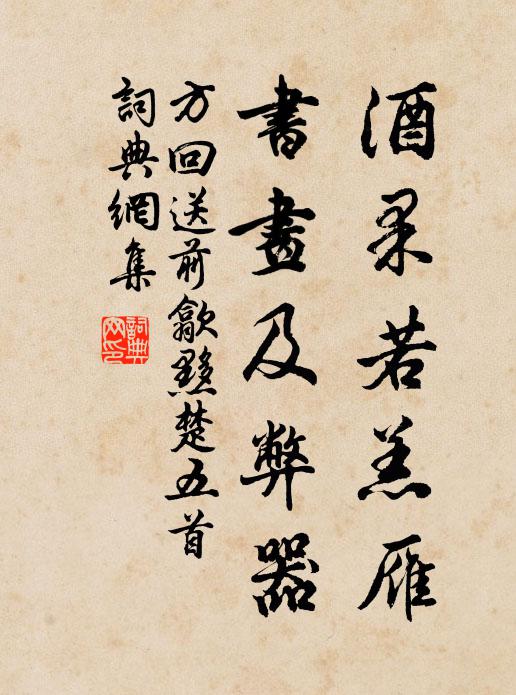 酒果若羔雁
書畫及弊器
方回送前歙黟楚五首
詞典網集
詞典
网印